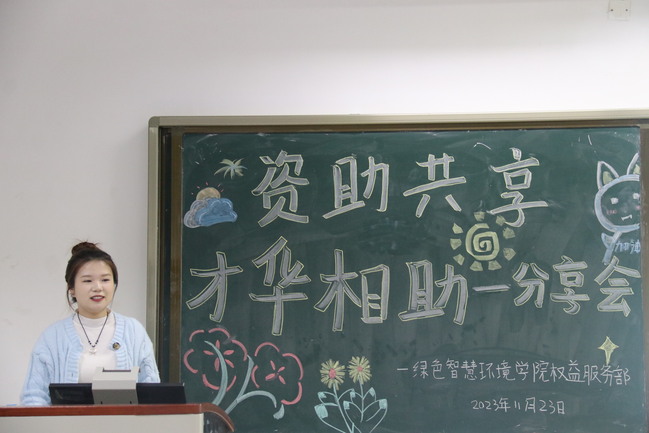 资助共享
才华相助—分享会
—绿色智慧环境学院权益服务部
2023年11月23日
加油